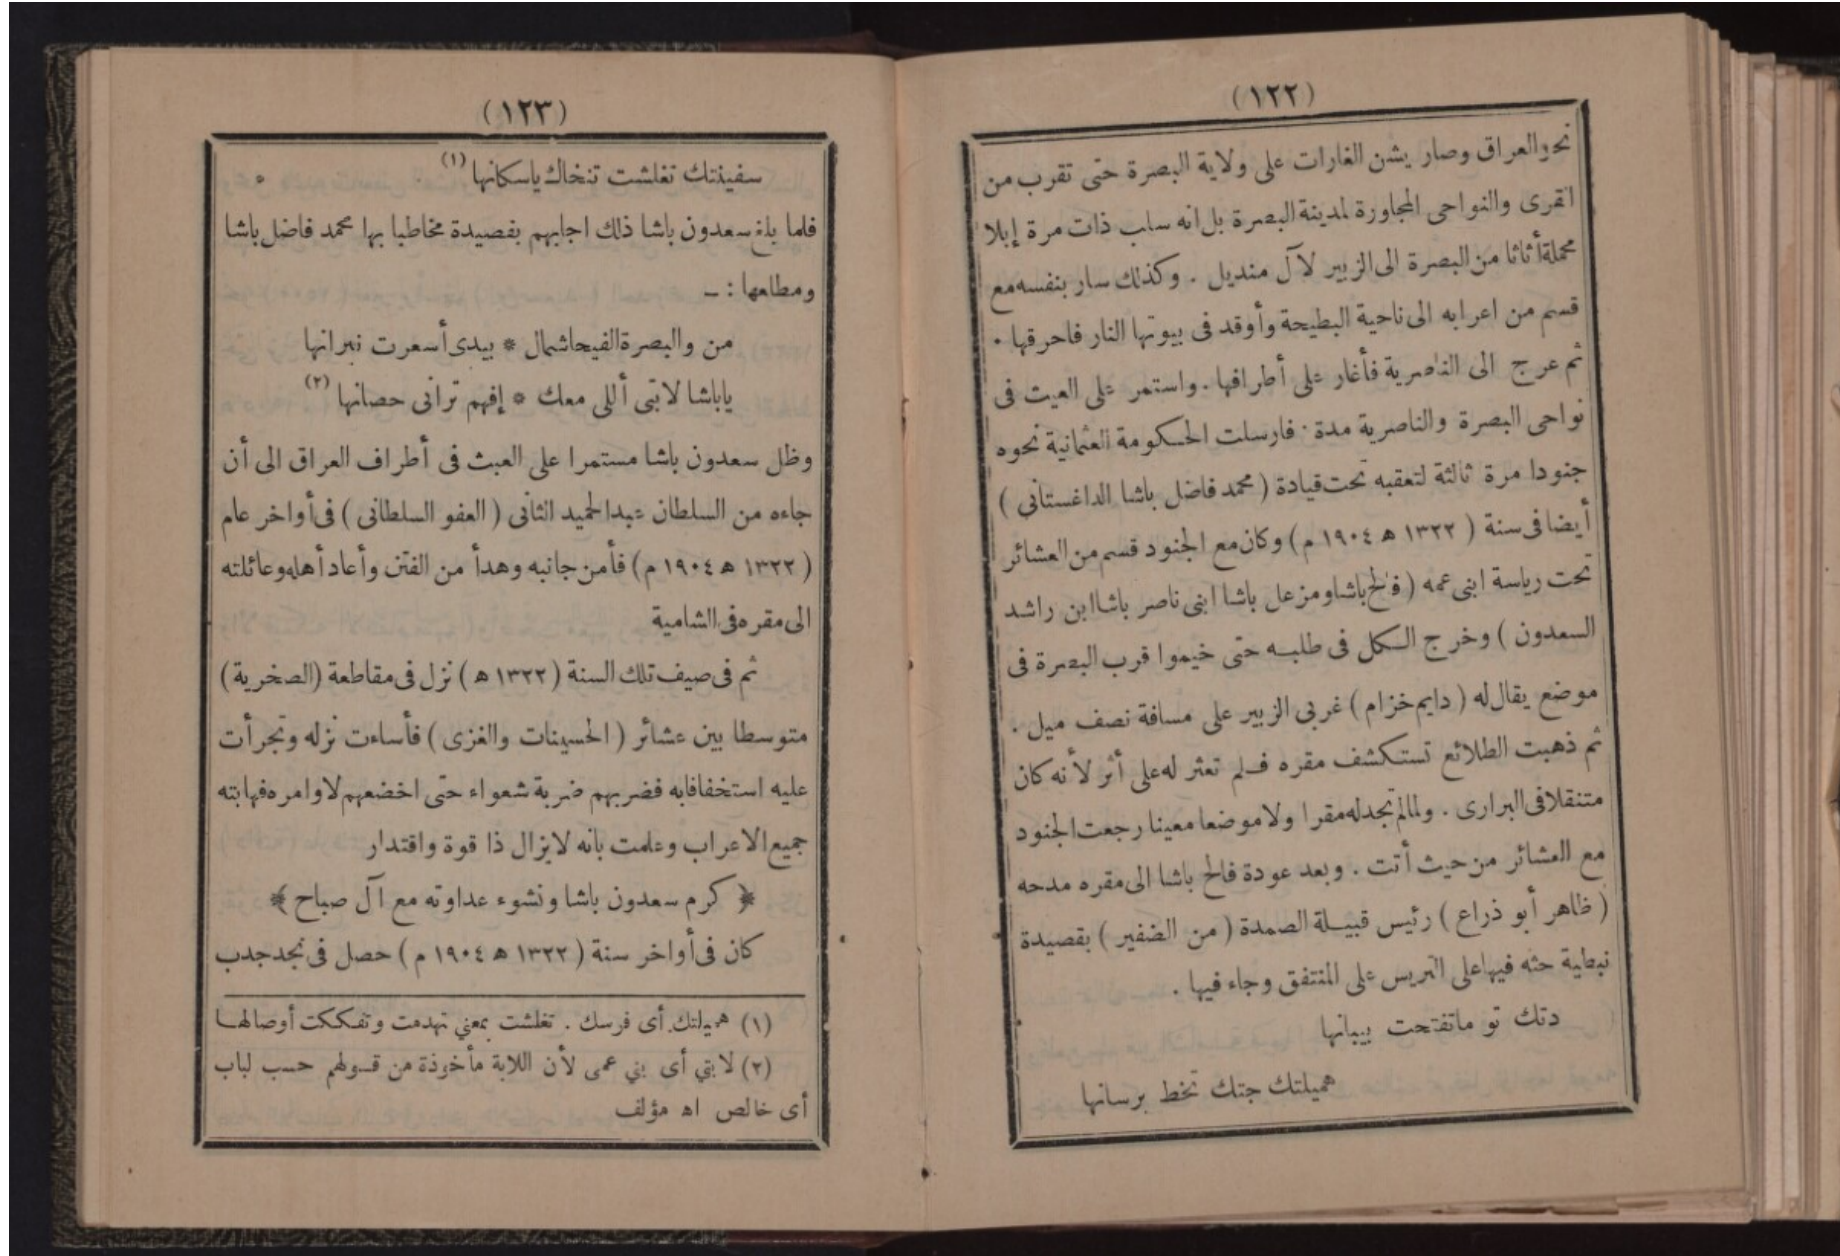 (١٢٢)
نحو العراق وصار يشن الغارات على ولاية البصرة حتى تقرب من
القرى والنواحى المجاورة لمدينة البصرة بل انه سلب ذات مرة إبلا
محملة أثاثا من البصرة الى الزبير لآل منديل . وكذلك سار بنفسه مع
قسم من اعرابه الى ناحية البطيحة وأوقد فى بيوتها النار فاحرقها .
ثم عرج الى الناصرية فأغار على أطرافها . واستمر على العيث فى
نواحى البصرة والناصرية مدة . فارسلت الحكومة العثمانية نحوه
جنودا مرة ثالثة لتعقبه تحت قيادة ( محمد فاضل باشا الداغستانى )
أيضا فى سنة ( ١٣٢٢ ه ١٩٠٤ م ) وكان مع الجنود قسم من العشائر
تحت رياسة ابنى عمه ( فالح باشا ومزعل باشا ابنى ناصر باشا ابن راشد
السعدون ) وخرج الكل فى طلبه حتى خيموا قرب البصرة فى
موضع يقال له ( دايم خزام ) غربى الزبير على مسافة نصف ميل .
ثم ذهبت الطلائع تستكشف مقره فلم تعثر له على أثر لأنه كان
متنقلا فى البرارى . ولما لم تجد له مقرا ولا موضعا معينا رجعت الجنود
مع العشائر من حيث أتت . وبعد عودة فالح باشا الى مقره مدحه
( ظاهر أبو ذراع ) رئيس قبيلة الصمدة ( من الضفير ) بقصيدة
نبطية حثه فيها على التريس على المنتفق وجاء فيها .
دتك تو ماتفتحت بيبانها
هميلتك جتك تخط برسانها
(١٢٣)
سفينتك تغلشت تنخاك ياسكانها (١) .
فلما بلغ سعدون باشا ذلك اجابهم بقصيدة مخاطبا بها محمد فاضل باشا
ومطلعها : ـ
من والبصرة الفيحا شمال * بيدى أسعرت نيرانها
ياباشا لابتى أللى معك * إفهم ترانى حصانها (٢)
وظل سعدون باشا مستمرا على العبث فى أطراف العراق الى أن
جاءه من السلطان عبد الحميد الثانى ( العفو السلطانى ) فى أواخر عام
( ١٣٢٢ ه ١٩٠٤ م ) فأمن جانبه وهدأ من الفتن وأعاد أهله وعائلته
الى مقره فى الشامية
ثم فى صيف تلك السنة ( ١٣٢٢ ه ) نزل فى مقاطعة (الصخرية)
متوسطا بين عشائر ( الحسينات والغزى ) فأساءت نزله وتجرأت
عليه استخفافا به فضربهم ضربة شعواء حتى اخضعهم لاوامره فهابته
جميع الاعراب وعلمت بانه لايزال ذا قوة واقتدار
﴿ كرم سعدون باشا ونشوء عداوته مع آل صباح ﴾
كان فى أواخر سنة ( ١٣٢٢ ه ١٩٠٤ م ) حصل فى نجد جدب
(١) هميلتك أى فرسك . تغلشت بمعنى تهدمت وتفككت أوصالها
(٢) لابتي أى بني عمى لأن اللابة مأخوذة من قولهم حسب لباب
أى خالص اه مؤلف